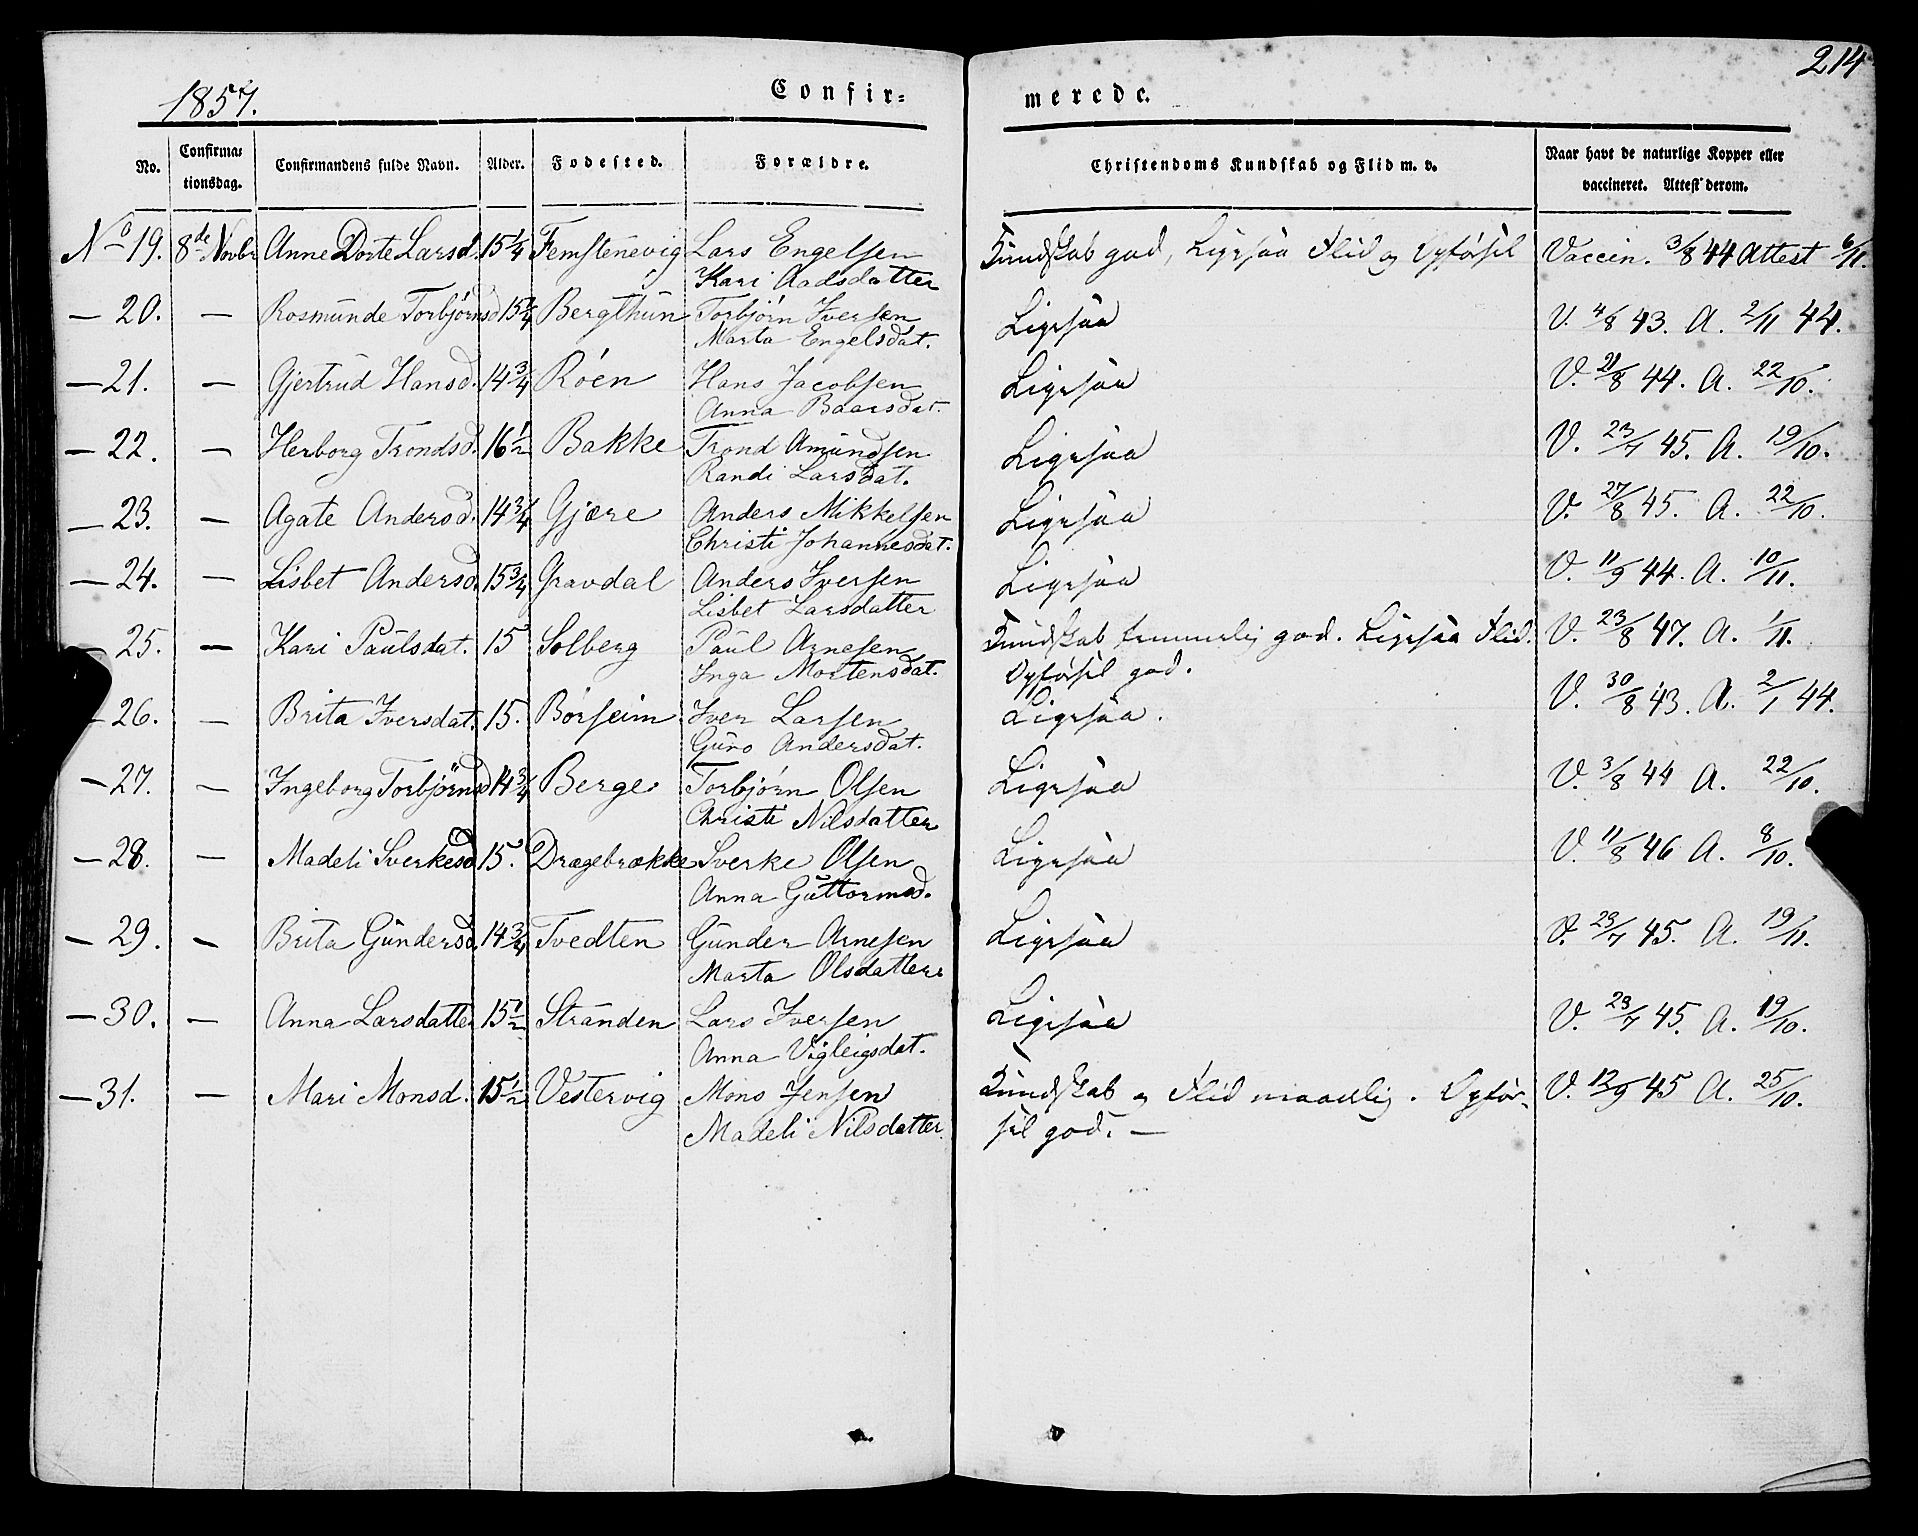 214
1857.
Confir=
merede.
No.
Confirma=
tionsdag.
Confirmandens fulde Navn.
Alder.
Fodested.
Forældre.
Christendoms Kundskab og Flid m. v.
Naar havt de naturlige Kopper eller
vaccineret. Attest derom.
No 19. 8de Novbr Anne Dorte Larsd. 15 1/4 Femstenevig Lars Engelsen Kundskab god, Ligesaa Flid og Opførsel Vaccin. 3/8 44 Attest 6/11.
Kari Aadsdatter
— 20. — Rosmunde Torbjörnsd 15 1/4 Bergthun Torbjørn Iversen Ligesaa V. 4/8 43. A. 2/11 44.
Marta Engelsdat.
— 21. — Gjertrud Hansd. 14 3/4 Röen Hans Jacobsen Ligesaa V. 21/8 44. A. 22/10.
Anna Baarsdat.
— 22. — Herborg Trondsd. 16 1/2 Bakke Trond Amundsen Ligesaa V. 23/7 45. A. 19/10.
Randi Larsdat.
— 23. — Agate Andersd. 14 3/4 Gjære Anders Mikkelsen Ligesaa V. 27/8 45. A. 22/10.
Christi Johannesdat.
— 24. — Lisbet Andersd. 15 3/4 Gravdal Anders Iversen Ligesaa V. 11/9 44. A. 10/11.
Lisbet Larsdatter
— 25. — Kari Paulsdat. 15 Solberg Paul Arnesen Kundskab temmelig god. Ligesaa Flid. V. 23/8 47. A. 1/11.
Inga Mortensdat. Opførsel god.
— 26. — Brita Iversdat. 15. Børseim Iver Larsen Ligesaa. V. 30/8 43. A. 2/1 44.
Guro Andersdat.
— 27. — Ingeborg Torbjörnsd 14 3/4 Berge Torbjørn Olsen Ligesaa V. 3/8 44 A. 22/10.
Christi Nilsdatter
— 28. — Madeli Sverkesd 15. Drægebrække Sverke Olsen Ligesaa V. 11/8 46 A. 8/10.
Anna Guttormsd.
— 29. — Brita Gundersd. 14 3/4 Tvedten Gunder Arnesen Ligesaa V. 23/7 45. A. 19/11.
Marta Olsdatter
— 30. — Anna Larsdatter 15 1/2 Stranden Lars Iversen Ligesaa V. 23/7 45. A. 19/10.
Anna Vigleigsdat.
— 31. — Mari Monsd. 15 1/2 Vestervig Mons Jensen Kundskab og Flid maadelig. Opfør- V. 12/9 45 A. 25/10.
Madeli Nilsdatter sel god. —